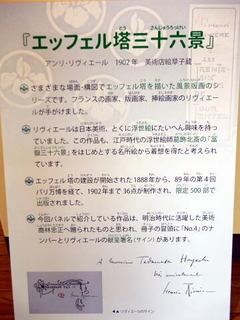 とう さんじゅうろっけい
『エッフェル塔三十六景』
アンリ・リヴィエール 1902年 美術店絵草子蔵
さまざまな場面・構図でエッフェル塔を描いた風景版画のシ
リーズです。フランスの画家、版画家、挿絵画家のリヴィエー
ルが手がけました。
リヴィエールは日本美術、とくに浮世絵にたいへん興味を持っ
ていました。この作品も、江戸時代の浮世絵師葛飾北斎の「富
嶽三十六景」をはじめとする名所絵から着想を得たと考えられ
ています。
エッフェル塔の建設が開始された1888年から、89年の第4回
パリ万博を経て、1902年まで36点が制作され、限定500部で
出版されました。
今回パネルで紹介している作品は、明治時代に活躍した美術
商林忠正へ贈られたものと思われ、冊子の冒頭に「No.4」のナ
ンバーとリヴィエールの献呈署名(サイン)があります。
à Monsieur Tadamasa Hayashi
Henri Rivière
リヴィエールのサイン